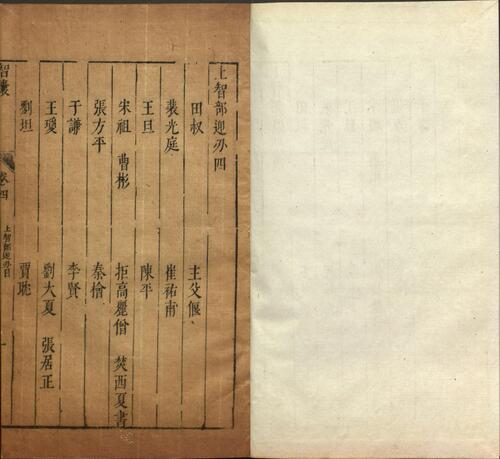 上智部迎刃四
田叔 主父偃
裴光庭 崔祐甫
王旦 陳平
宋祖 曹彬 拒高麗僧 焚西夏書
張方平 秦檜
于謙 李賢
王瓊 劉大夏 張居正
劉坦 賈耽
智囊 卷四 上智部迎刃目 一